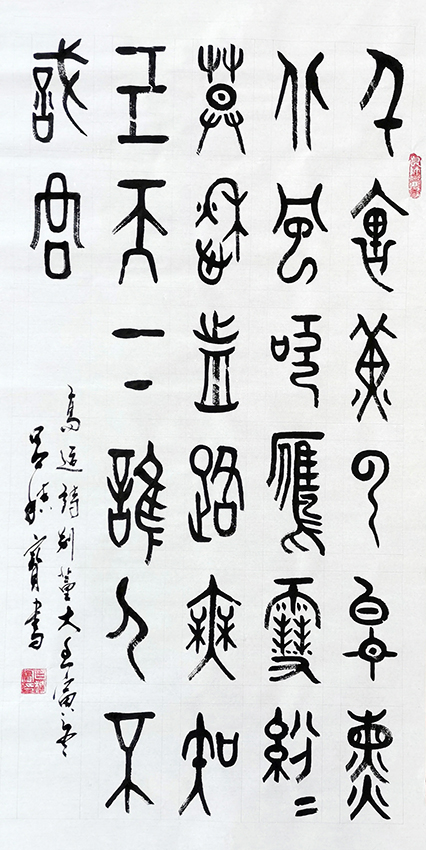 千里黃云白日熏
北風吹雁雪紛〻
莫愁前路無知
己天下誰人不
識君
高适詩别董大壬寅冬
寶書